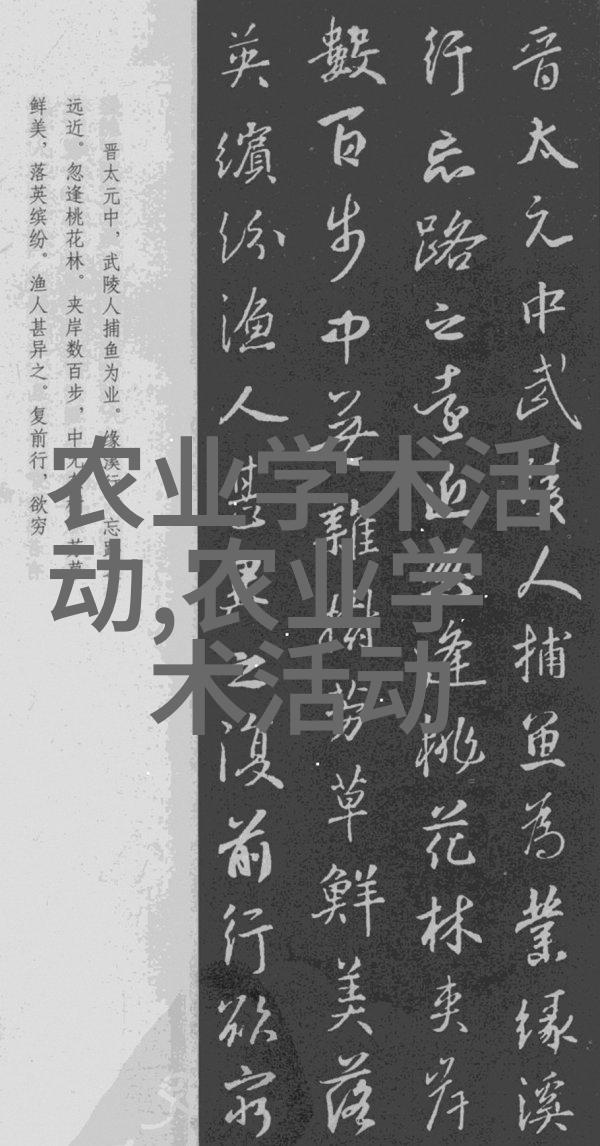 晋太元中武陵人捕鱼为業缘溪
行忘路之遠近忽逢桃花林夹岸
數百步中无雜樹芳草鮮美落
英缤纷渔人甚異之復前行欲穷
晋太元中，武陵人捕鱼为业。缘溪行，忘路
远近。忽逢桃花林。夹岸数百步，中无杂 芳草
鲜美，落英缤纷。渔人甚异之。复前行，欲穷
农业学术活
动,农业学
术活动